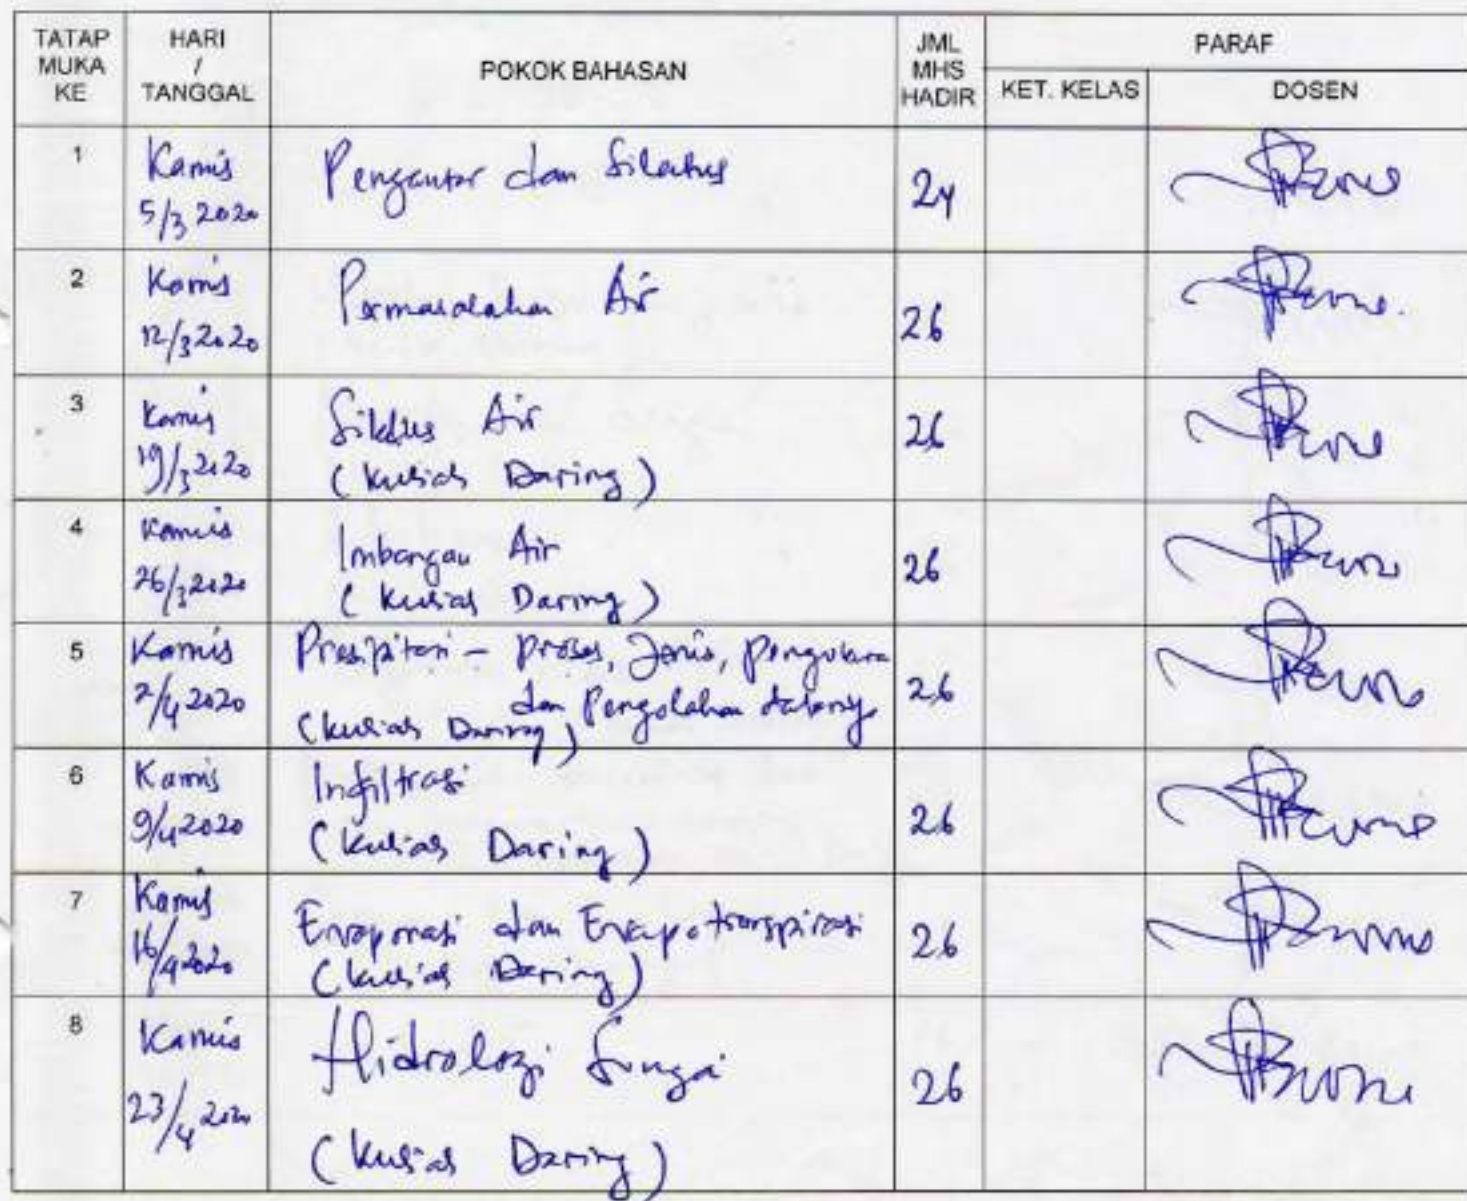 TATAP MUKA KE HARI / TANGGAL POKOK BAHASAN JML MHS HADIR PARAF
KET. KELAS DOSEN
1 Kamis 5/3 2020 Pengantar dan Silabus 24
2 Kamis 12/3 2020 Permasalahan Air 26
3 Kamis 19/3 2020 Siklus Air 26
(Kuliah Daring)
4 Kamis 26/3 2020 Imbangan Air 26
(Kuliah Daring)
5 Kamis 2/4 2020 Presipitasi - Proses, Jenis, Pengukura 26
dan Pengolahan datanya
(Kuliah Daring)
6 Kamis 9/4 2020 Infiltrasi 26
(Kuliah Daring)
7 Kamis 16/4 2020 Evaporasi dan Evapotranspirasi 26
(Kuliah Daring)
8 Kamis 23/4 2020 Hidrologi Sungai 26
(Kuliah Daring)